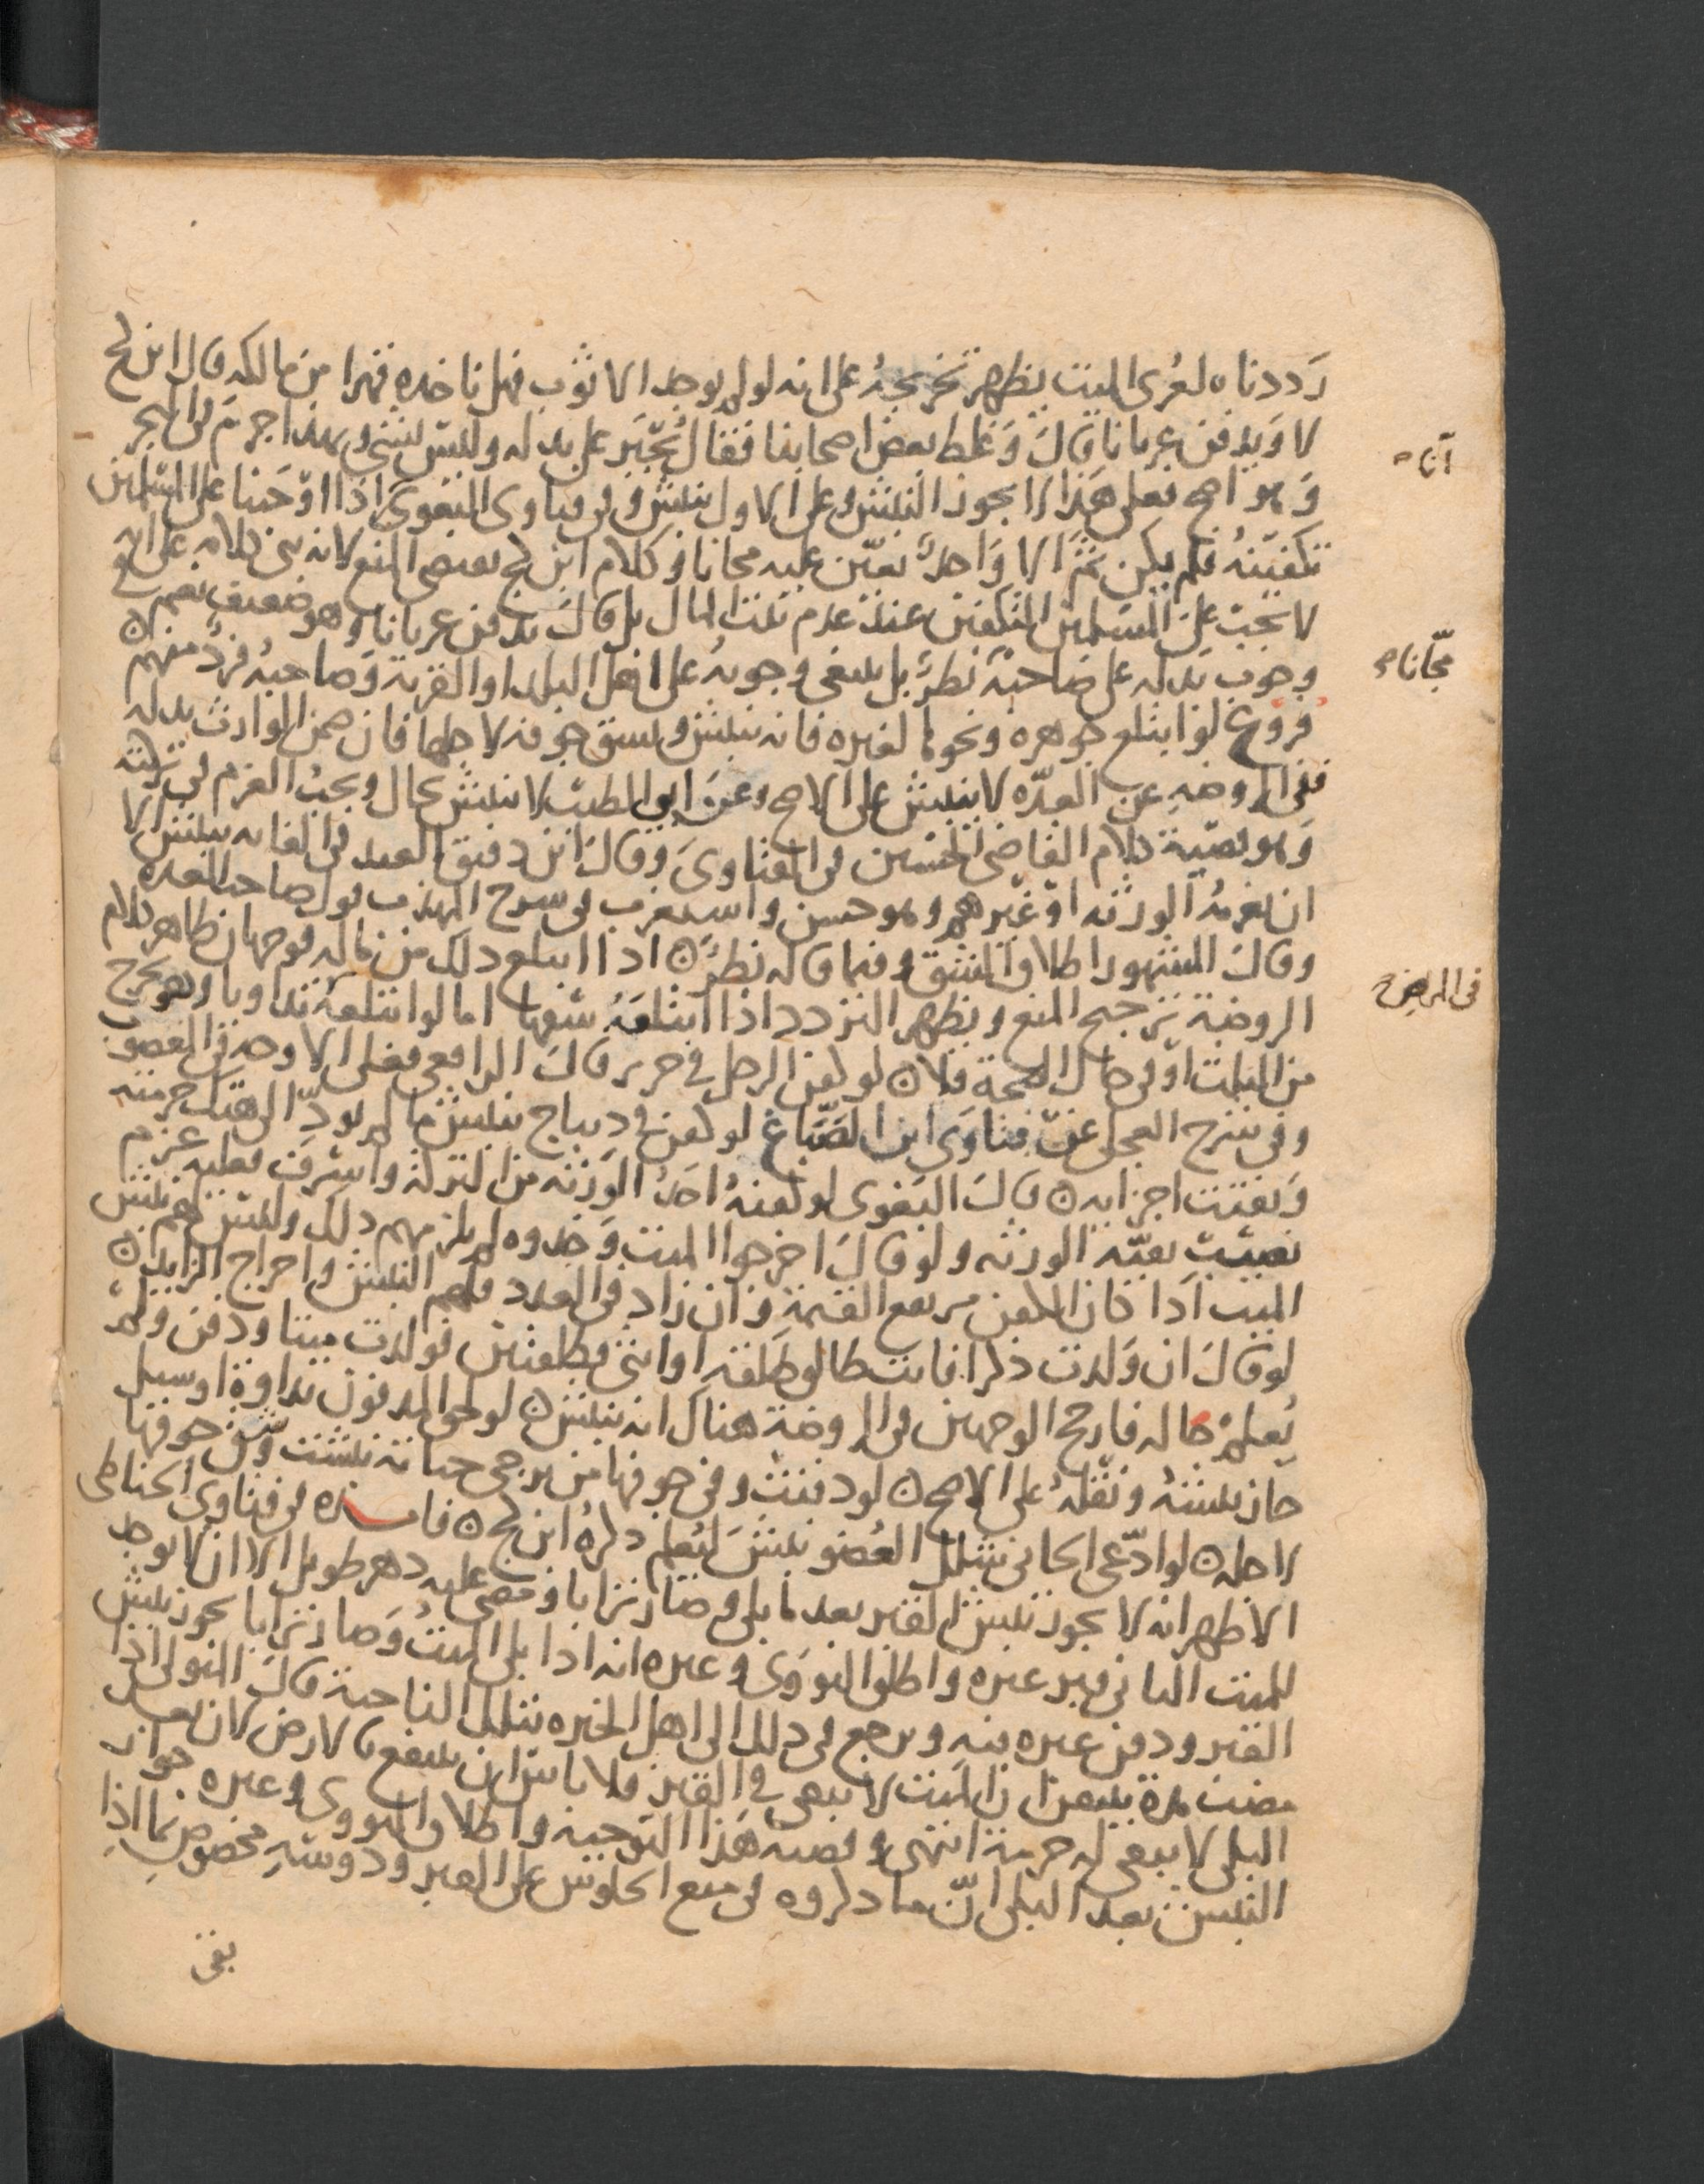 رَددناه لعُرى الميت يظهر تخريجهُ على انه لو لم يوجد الا ثوب فهل ناخذه قهرا من مالكه قال ابن كج
لا وَيدفن عريانا قال وَغلط بعض اصحابنا فقال يُجبَر على بدله وليس بشي وبهذا جزم في البحر
وَهو اصح فعلى هذا لا يجوز النبش وعلى الاول ينبش وفي فتاوى البغوي اذا اوجبنا على المسلمين
تكفينهُ فلم يكن ثَمَّ الا وَاحدٌ تعيّن عليه مجانا وكلام ابن كج يقتضي المنع لانه بنى كلامه على انه
لا يجب على المسلمين التكفين عند عدم بيت المال بل قال يدفن عريانا وهو ضعيف نعم
وجوب بدله على صَاحبه نظرٌ بل ينبغي وجوبهُ على اهل البلد او القرية وَصاحبهُ فردٌ منهم ن
فروع لو ابتلع جوهرة ونحوها لغيره فانه ينبش ويشق جوفه لاجلها فان ضمن الوارث بدله
ففي الروضهِ عن العدّه لا ينبش على الاصح وعن ابي الطيب لا ينبش بحال ويجب الغرم في تركته
وَهو قضيّة كلام القاضي الحسين في الفتاوىَ وقال ابن دقيق العيد في الفايه ينبش الا
ان يغرمهُ الورثه اوْ غيرهم وهو حسن واستغرب في شرح المهذب قول صاحب العده
وقال المشهور اطلاق الشق وفيما قاله نظرٌ ن اذا ابتلع ذلك من ماله فوجهان ظاهر كلام
الروضة ترجيح المنع ويظهر التردد اذا ابتلعَهُ سَفها اما لو ابتلعَهُ تداويا وهو يخرج
من الثلث اوْ في حال الصحة فلا ن لو كفن الرجل في حرير قال الرافعي فعلى الاوجه في المغصوب
وفي شرح العجلي عن فتاوَى ابن الصَّباغ لو كفن في ديباج ينبش ما لم يودِّ الى هتك حرمته
وَتفتت اجزايه ن قال البَغوى لو كفنهُ احدُ الورثه من التركة واسرف فعليه غرم
نصيب بقيّه الورثه ولو قال اخرجوا الميت وَخذوه لم يلزمهم ذلك وليس لهم نبش
الميت اذا كان الكفن مرتفع القيمة وَان زاد في العدد فلهم النبش واخراج الزايد ن
لو قال ان وَلدت ذكرا فانت طالق طلقه او انثى فطلقتين فولدت ميتا ودفن ولمْ
يُعلمْ حاله فارجح الوجهين في الروضة هناك انه ينبش ن لو لحق المدفون نداوة او سيل
جاز نبشهُ ونقلهُ على الاصح ن لو دفنت وفي جوفها من يرجى حياته نبشت وَشق جوفها
لاجله ن لو ادّعى الجاني شلل العُضو نبشَ ليُعلم ذكرهُ ابن كج ن فايده في فتاوى الحناطى
الاظهر انه لا يجوز نبش القبر بعد ما بلى وَصار ترابا ومضى عليه دهر طويل الا ان لا يوجد
للميت الثاني قبر غيره واطلق النووَى وغيره انه اذا بلى الميتُ وَصار ترابا يجوز نبش
القبر ودفن غيره فيه ويرجع في ذلك الى اهل الخبره بتلك الناحية قال المتولي اذا
مضت مدة يتيقن ان الميت لا يبقى في القبر فلا باس ان ينتفع بالارض لان بعد
البلى لا يبقى له حرمة انتهى وقضية هَذا التوجيه واطلاق النووى وغيره جواز
النبش بعد البلى انّ ما ذكروه في منع الجلوس على القبر ودوسهِ مخصوص بما اذا
آناه
مجّانا
في المرض
بقى